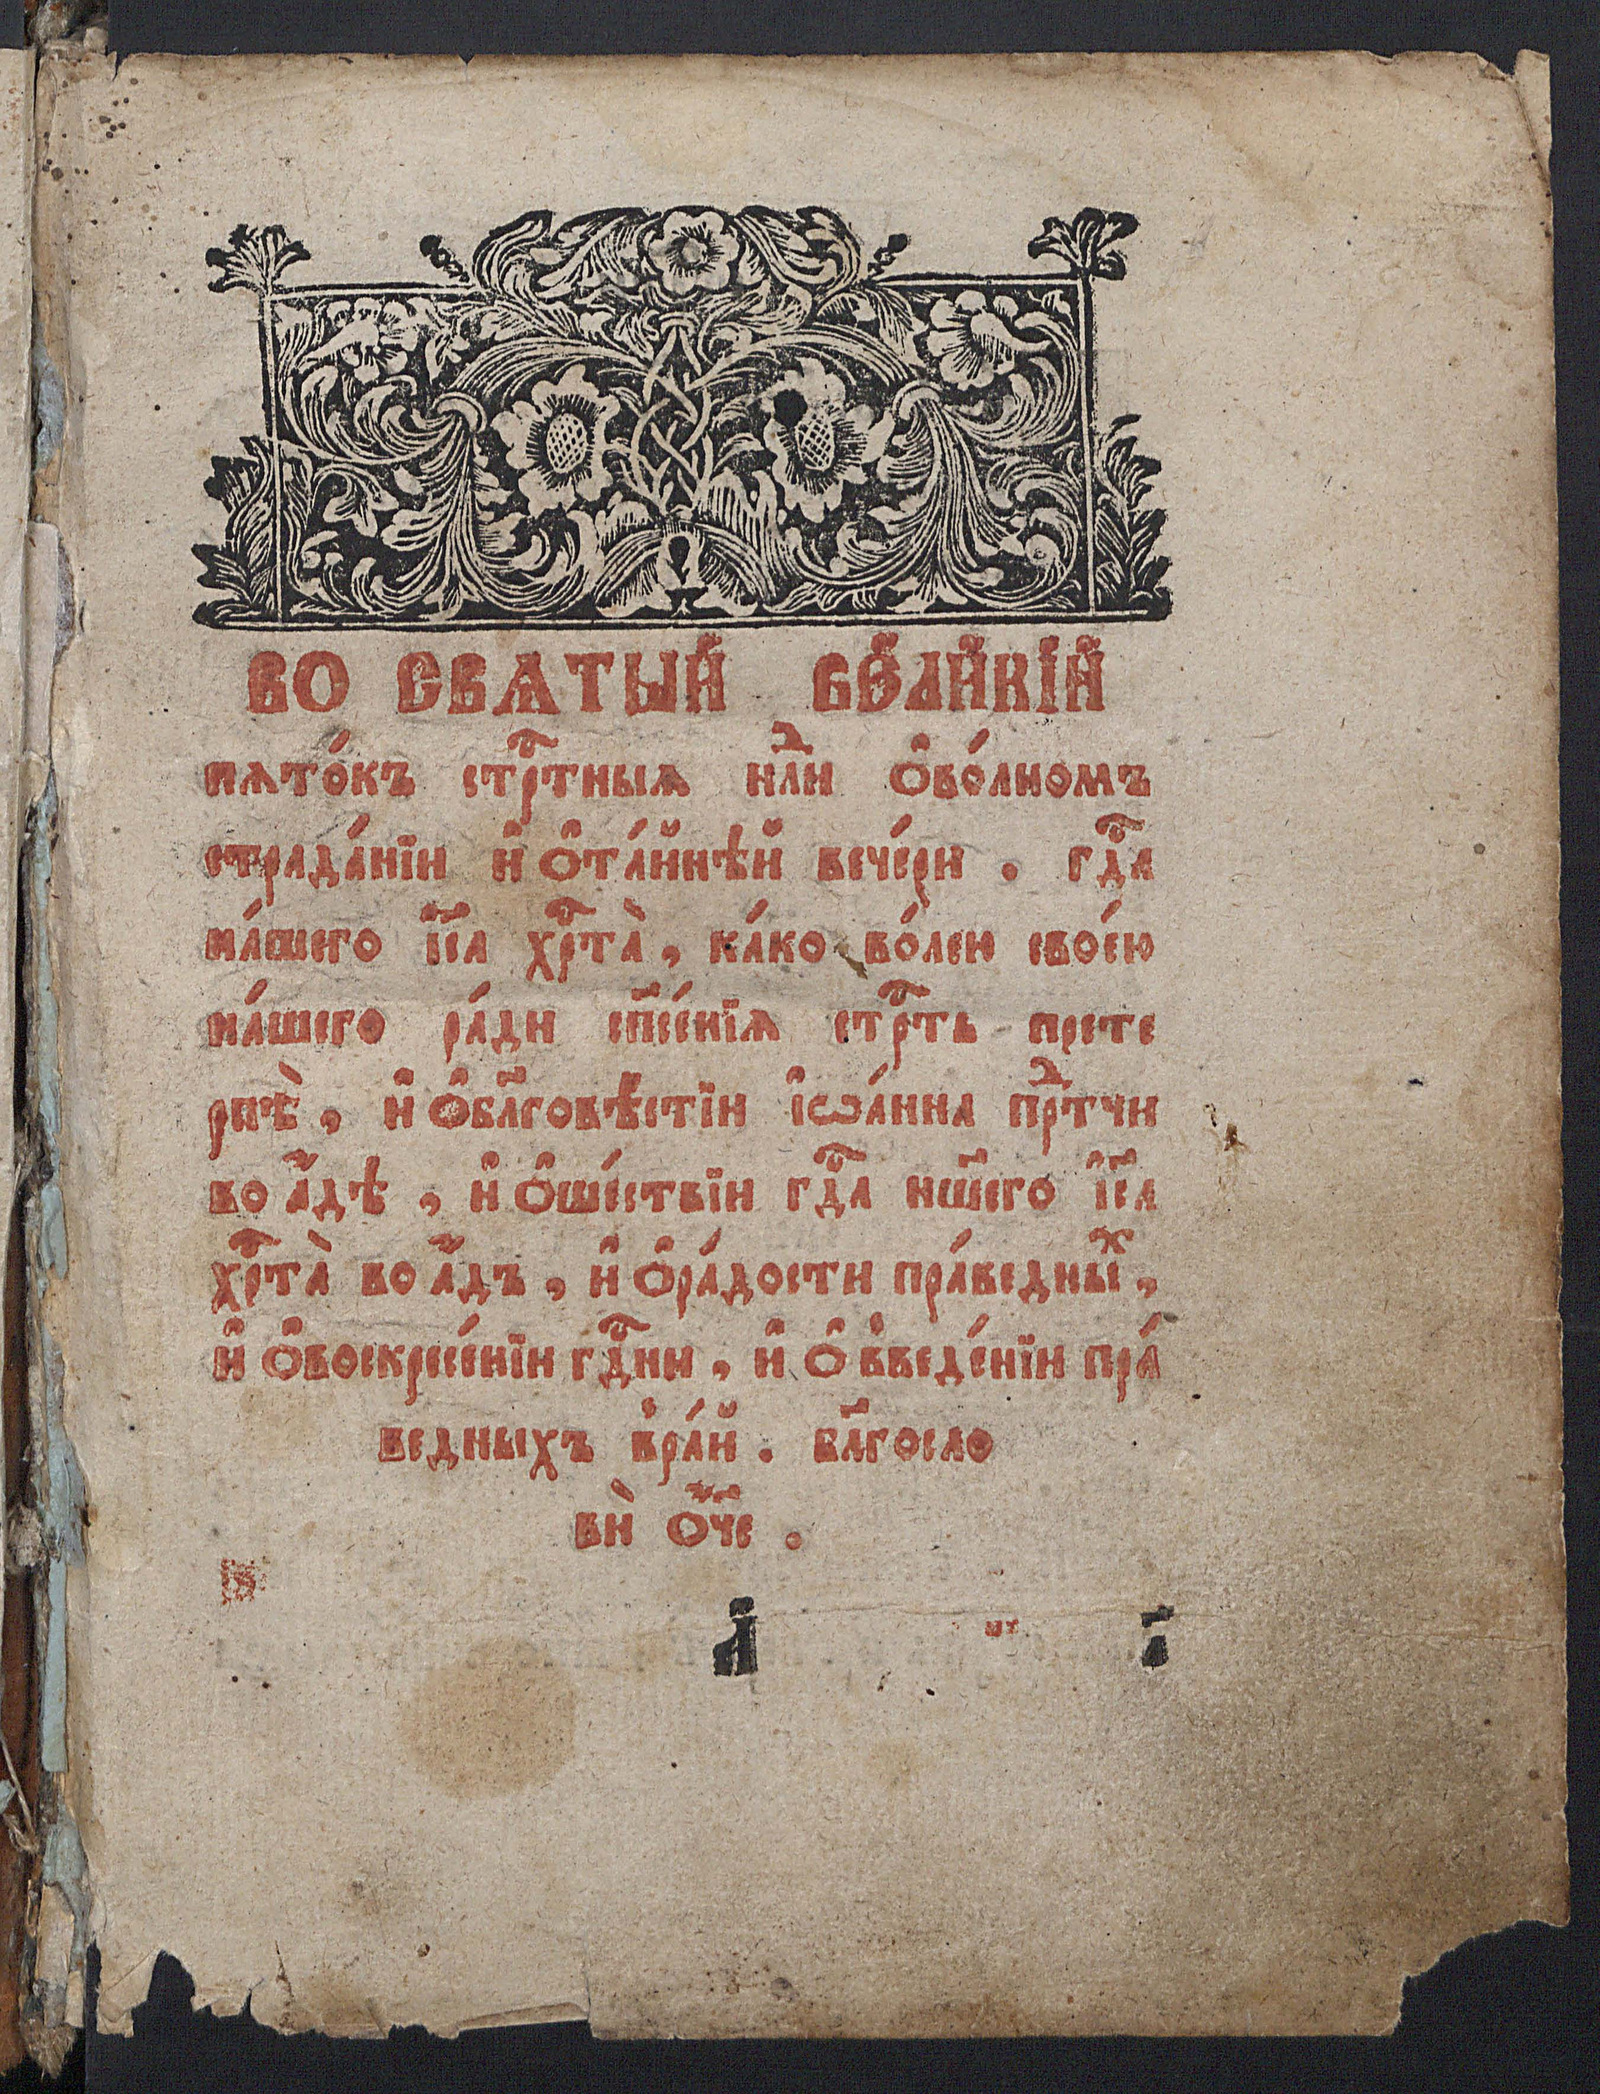 ВО СВѦТЫЙ ВЕЛИКІЙ
пѧто́къ стрⷭ҇тныѧ нⷣли ѻ҆во́лномъ
страда́нїи и҆ ѻ҆та́йнѣй вече́ри . гдⷭ҇а
на́шего і҆и҃са хрⷭ҇та̀, ка́ко во́лею свое́ю
на́шего ра́ди сп҃се́нїѧ стрⷭ҇ть прете
рпѣ̀, и҆ ѻ҆бл҃говѣстїи і҆ѡа́нна прⷣтчи
во а҆́дѣ, и҆ ѻ҆ше́ствїи гдⷭ҇а нш҃его і҆и҃са
хрⷭ҇та̀ во а҆́дъ, и҆ ѻ҆ра́дости пра́ведныⷯ,
и҆ ѻ҆воскресе́нїи гдⷭ҇ни, и҆ ѻ҆ введе́нїи пра́
ведныхъ вра́й . бл҃госло
вѝ ѻ҆́ч҃е .
а҃ і҃